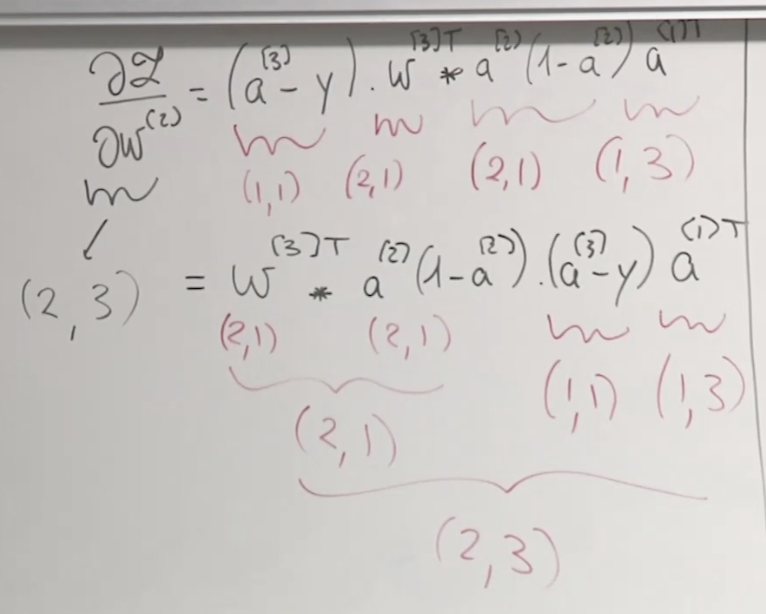 ∂ℒ/∂w^(2) = (a^[3] - y) · w^[3]T * a^[2] (1 - a^[2]) a^[1]T
(1,1) (2,1) (2,1) (1,3)
(2,3) = w^[3]T * a^[2] (1 - a^[2]) · (a^[3] - y) a^[1]T
(2,1) (2,1) (1,1) (1,3)
(2,1)
(2,3)